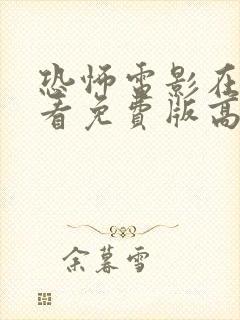 恐怖雷影在
看免費版高
余暮雪